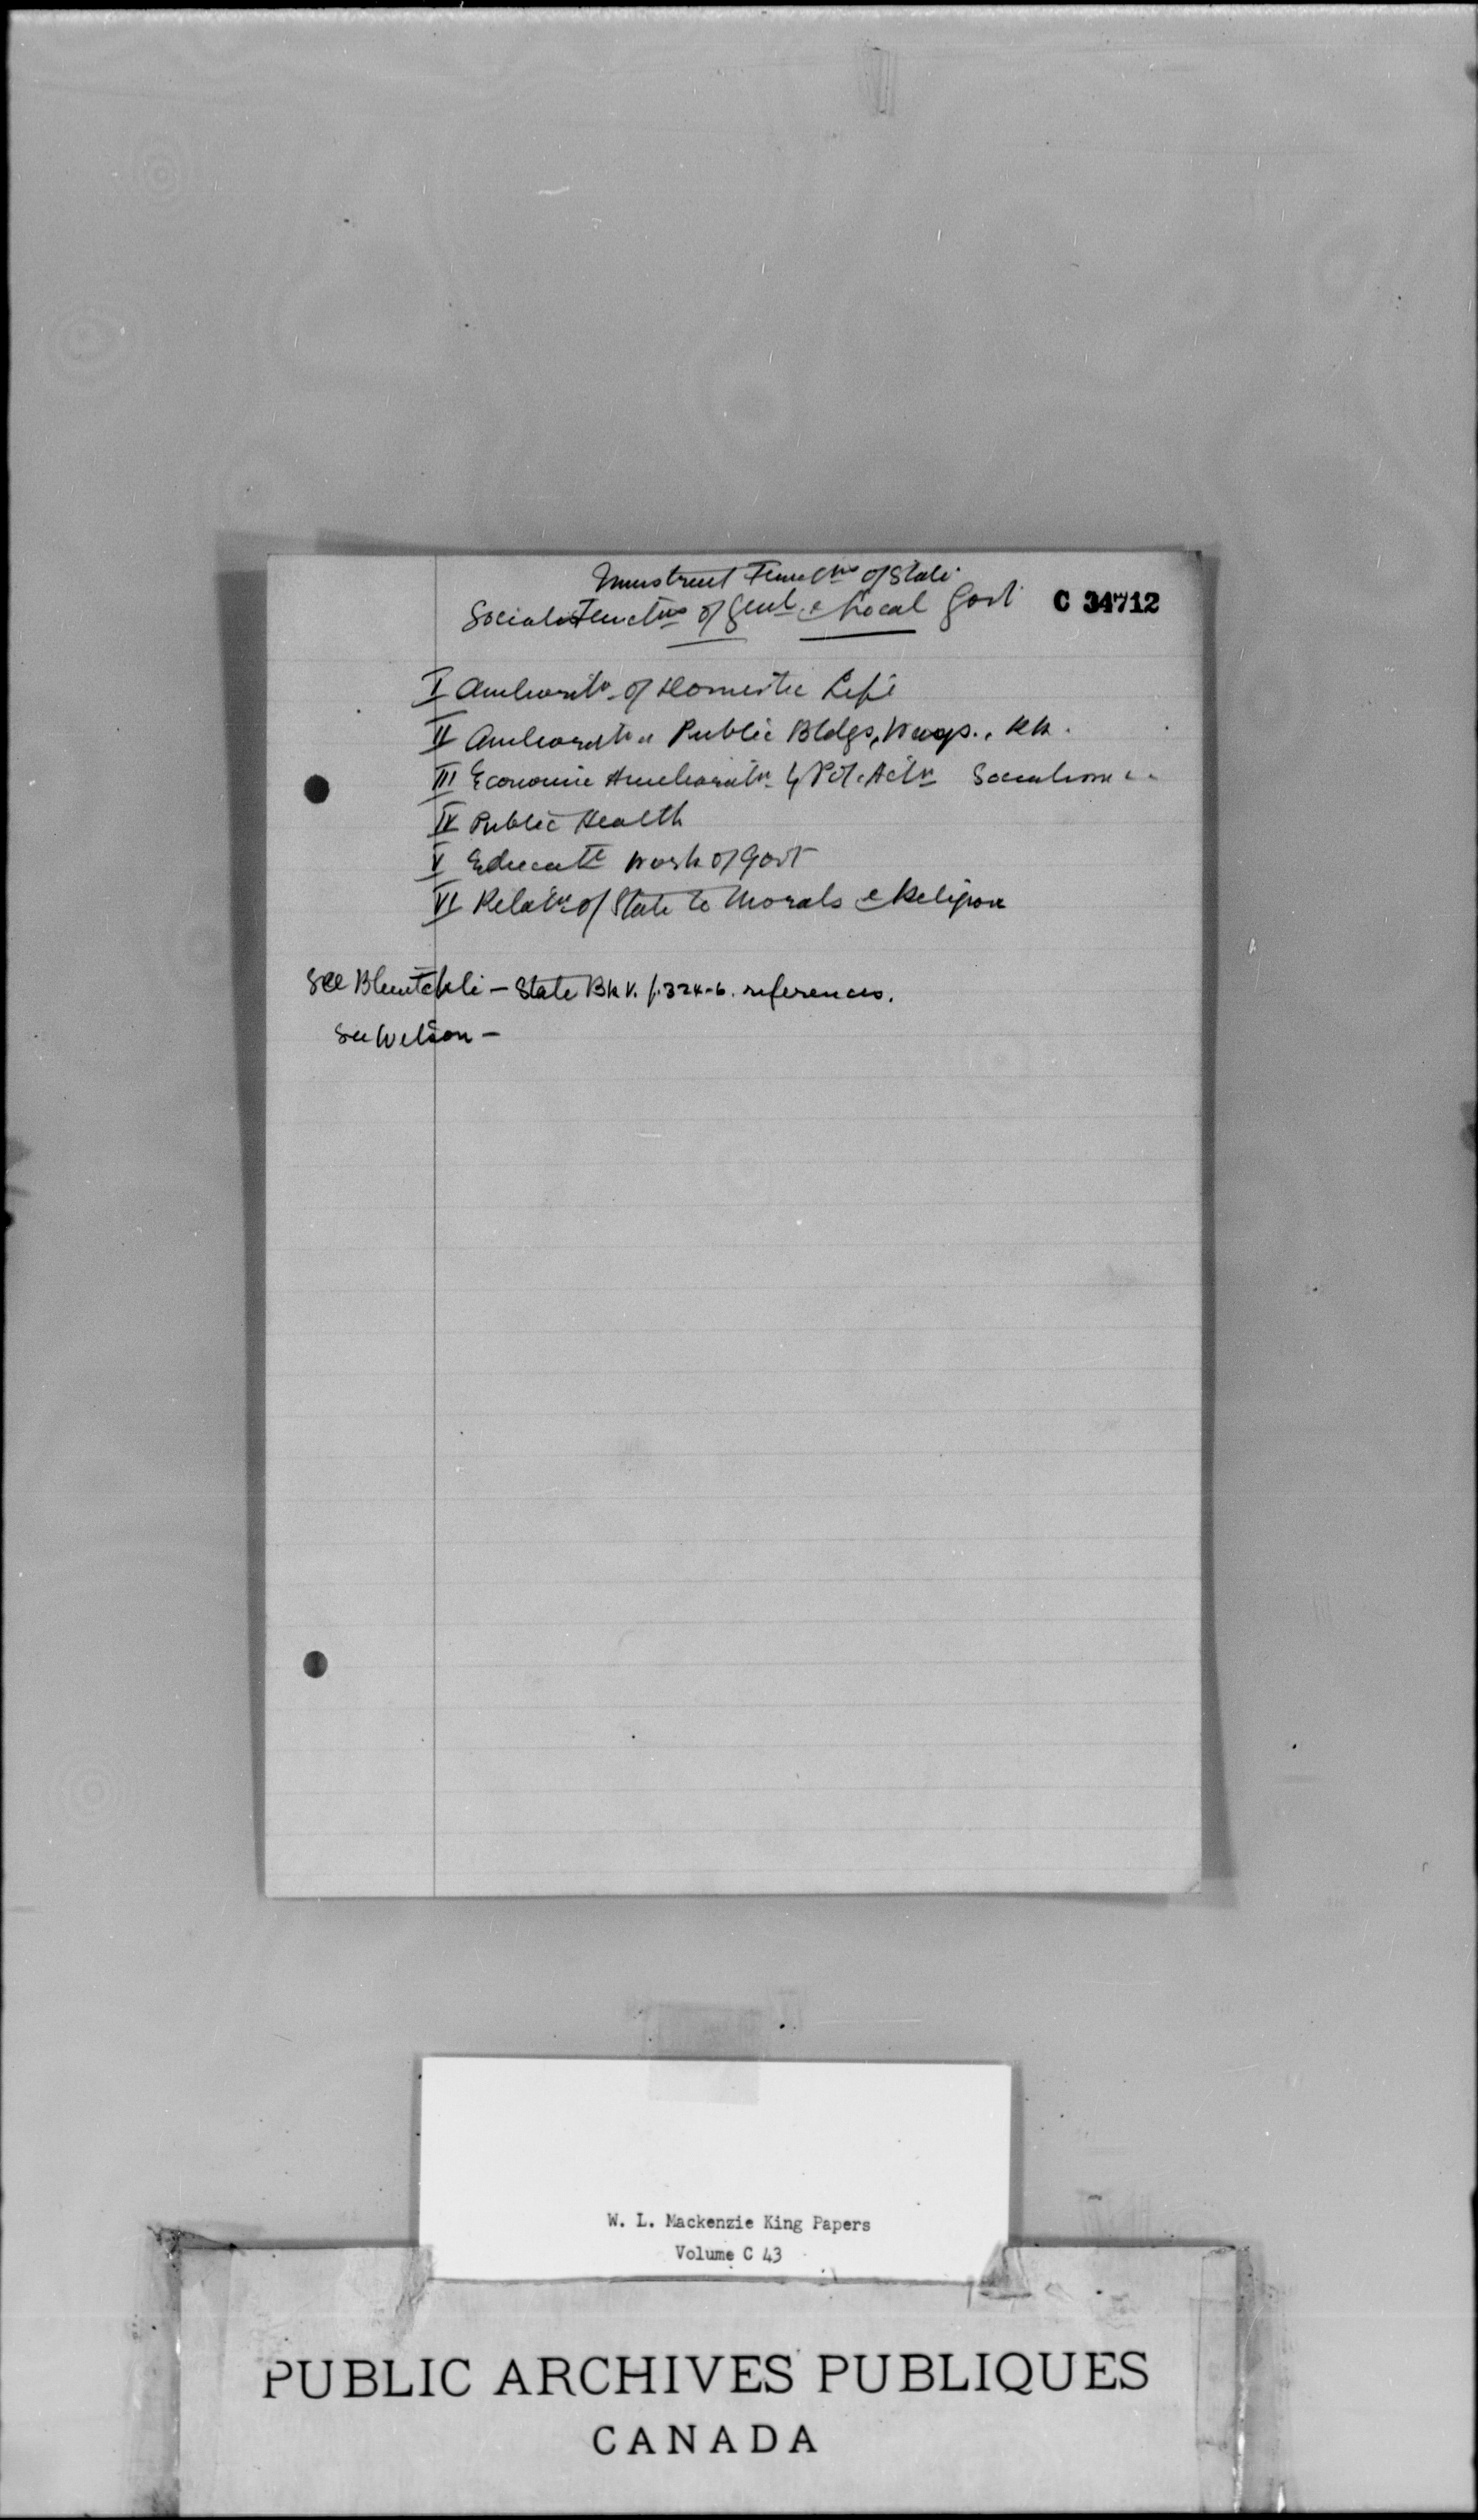 Functns of State
Social Functns of Genl & Local Govt C 34712
I Amelioratn of Domestic Life
II Amelioratn Public Bldgs, Ways., RR.
III Economic Amelioratn by Pol. Actn Socialism
IV Public Health
V Educatl Work of Govt
VI Relatn of State to Morals & Religion
See Bluntchli - State Bk V. p. 324-6. references.
See Wilson -
W. L. Mackenzie King Papers
Volume C 43
PUBLIC ARCHIVES PUBLIQUES
CANADA